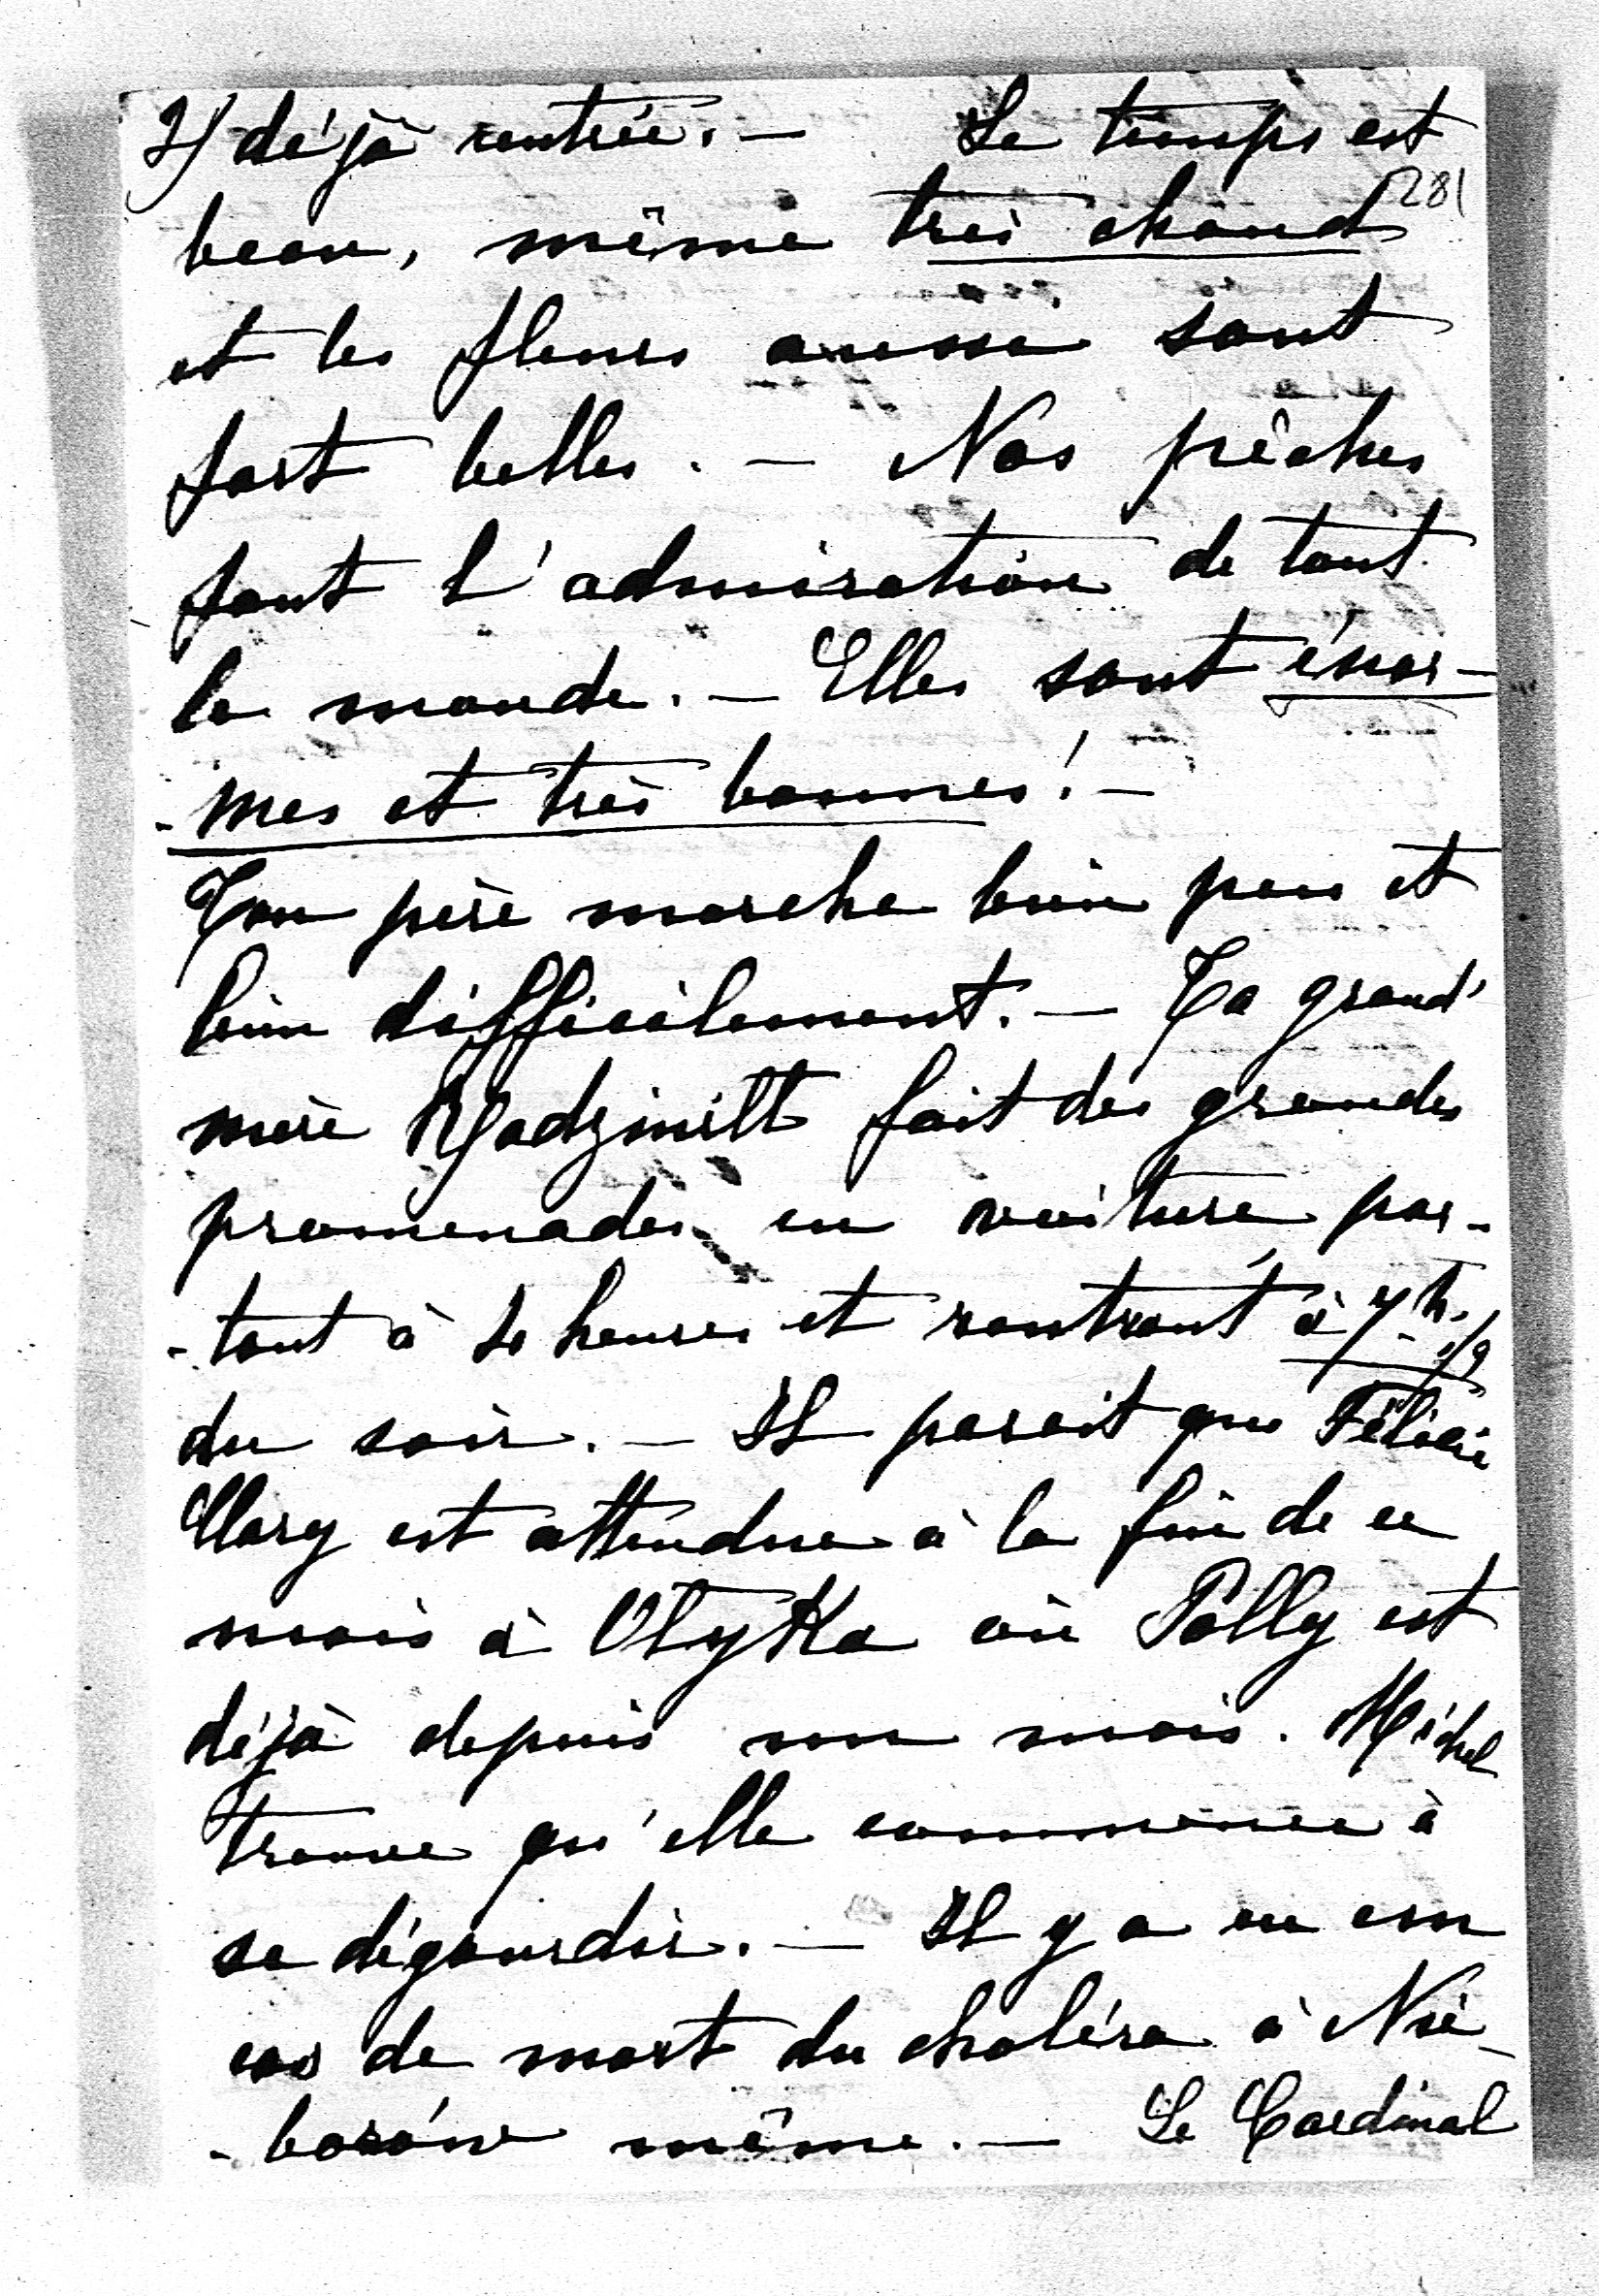 2) déjà rentrée. — Le temps est
281
beau, même très chaud
et les fleurs aussi sont
fort belles. — Nos pêches
font l'admiration de tout
le monde. — Elles sont énor-
-mes et très bonnes! —
Ton père marche bien peu et
bien difficilement. — Ta grand'
mère Radziwill fait des grandes
promenades en voiture par-
-tant à 4 heures et rentrant à 7 h. 1/2
du soir. — Il parait que Félicie
Clary est attendue à la fin de ce
mois à Olyka où Polly est
déjà depuis un mois. Michel
trouve qu'elle commence à
se dégourdir. — Il y a eu un
cas de mort du choléra à Nie-
-borów même. — Le Cardinal